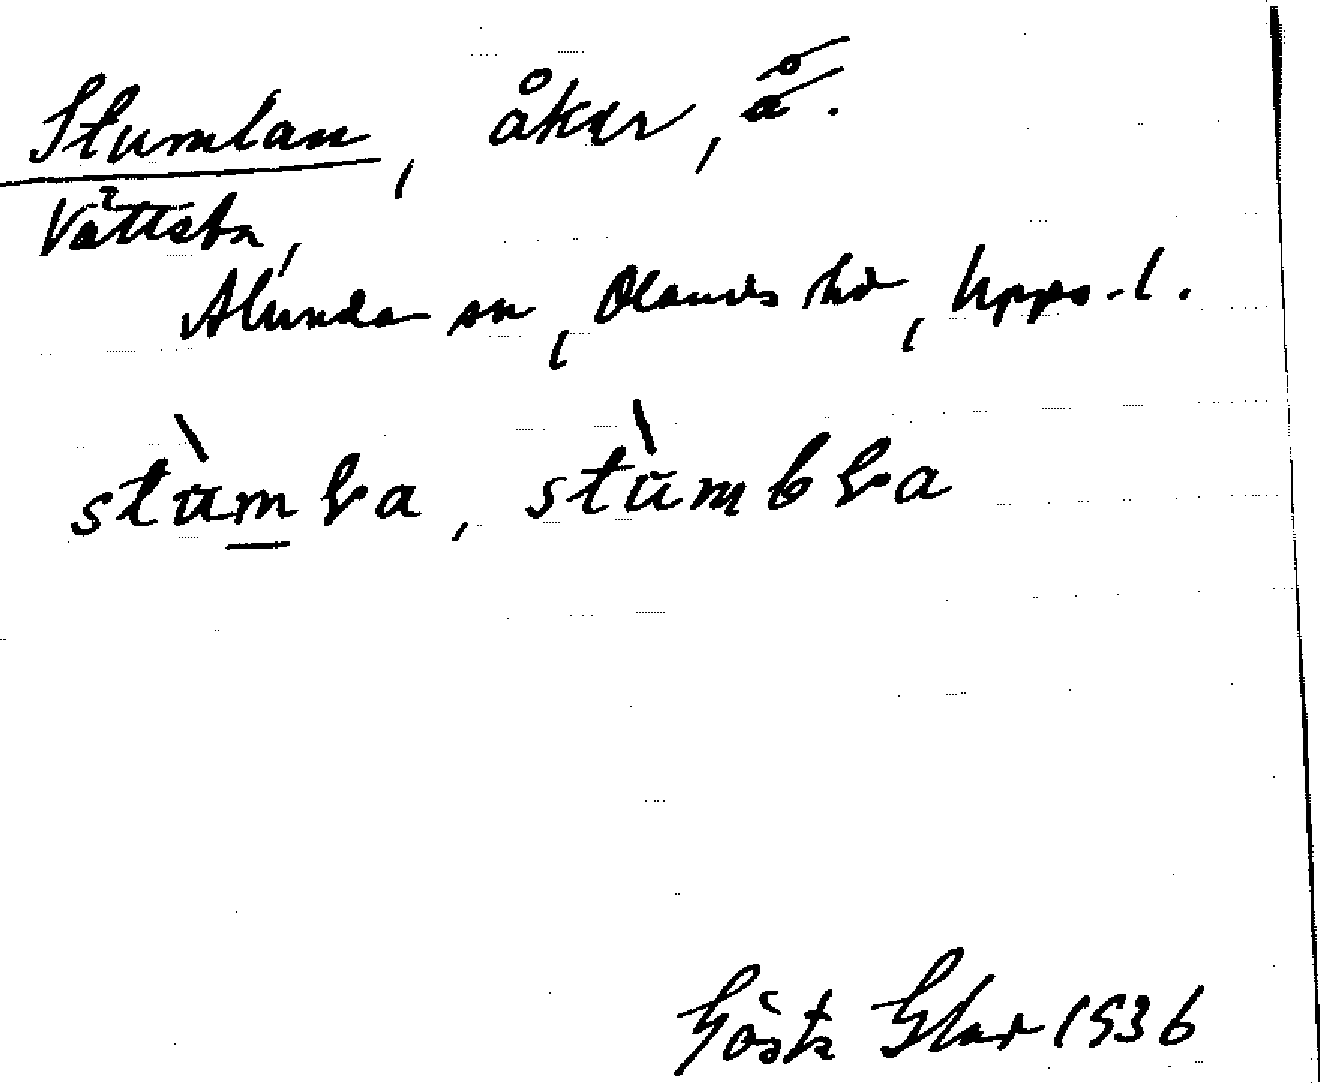 Stumlan, åker, å.
Vättsta,
Alunda sn, Olands hd, Upps. l.
stùmḷa, stùmbḷa
Gösta Elar 1936